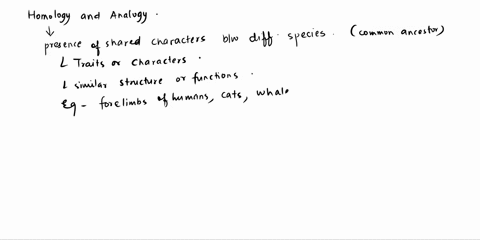 Homology and Analogy.
presence of shared characters b/w diff. species. (common ancestor)
Traits or characters.
similar structure or functions.
Eg - forelimbs of humans, cats, whale